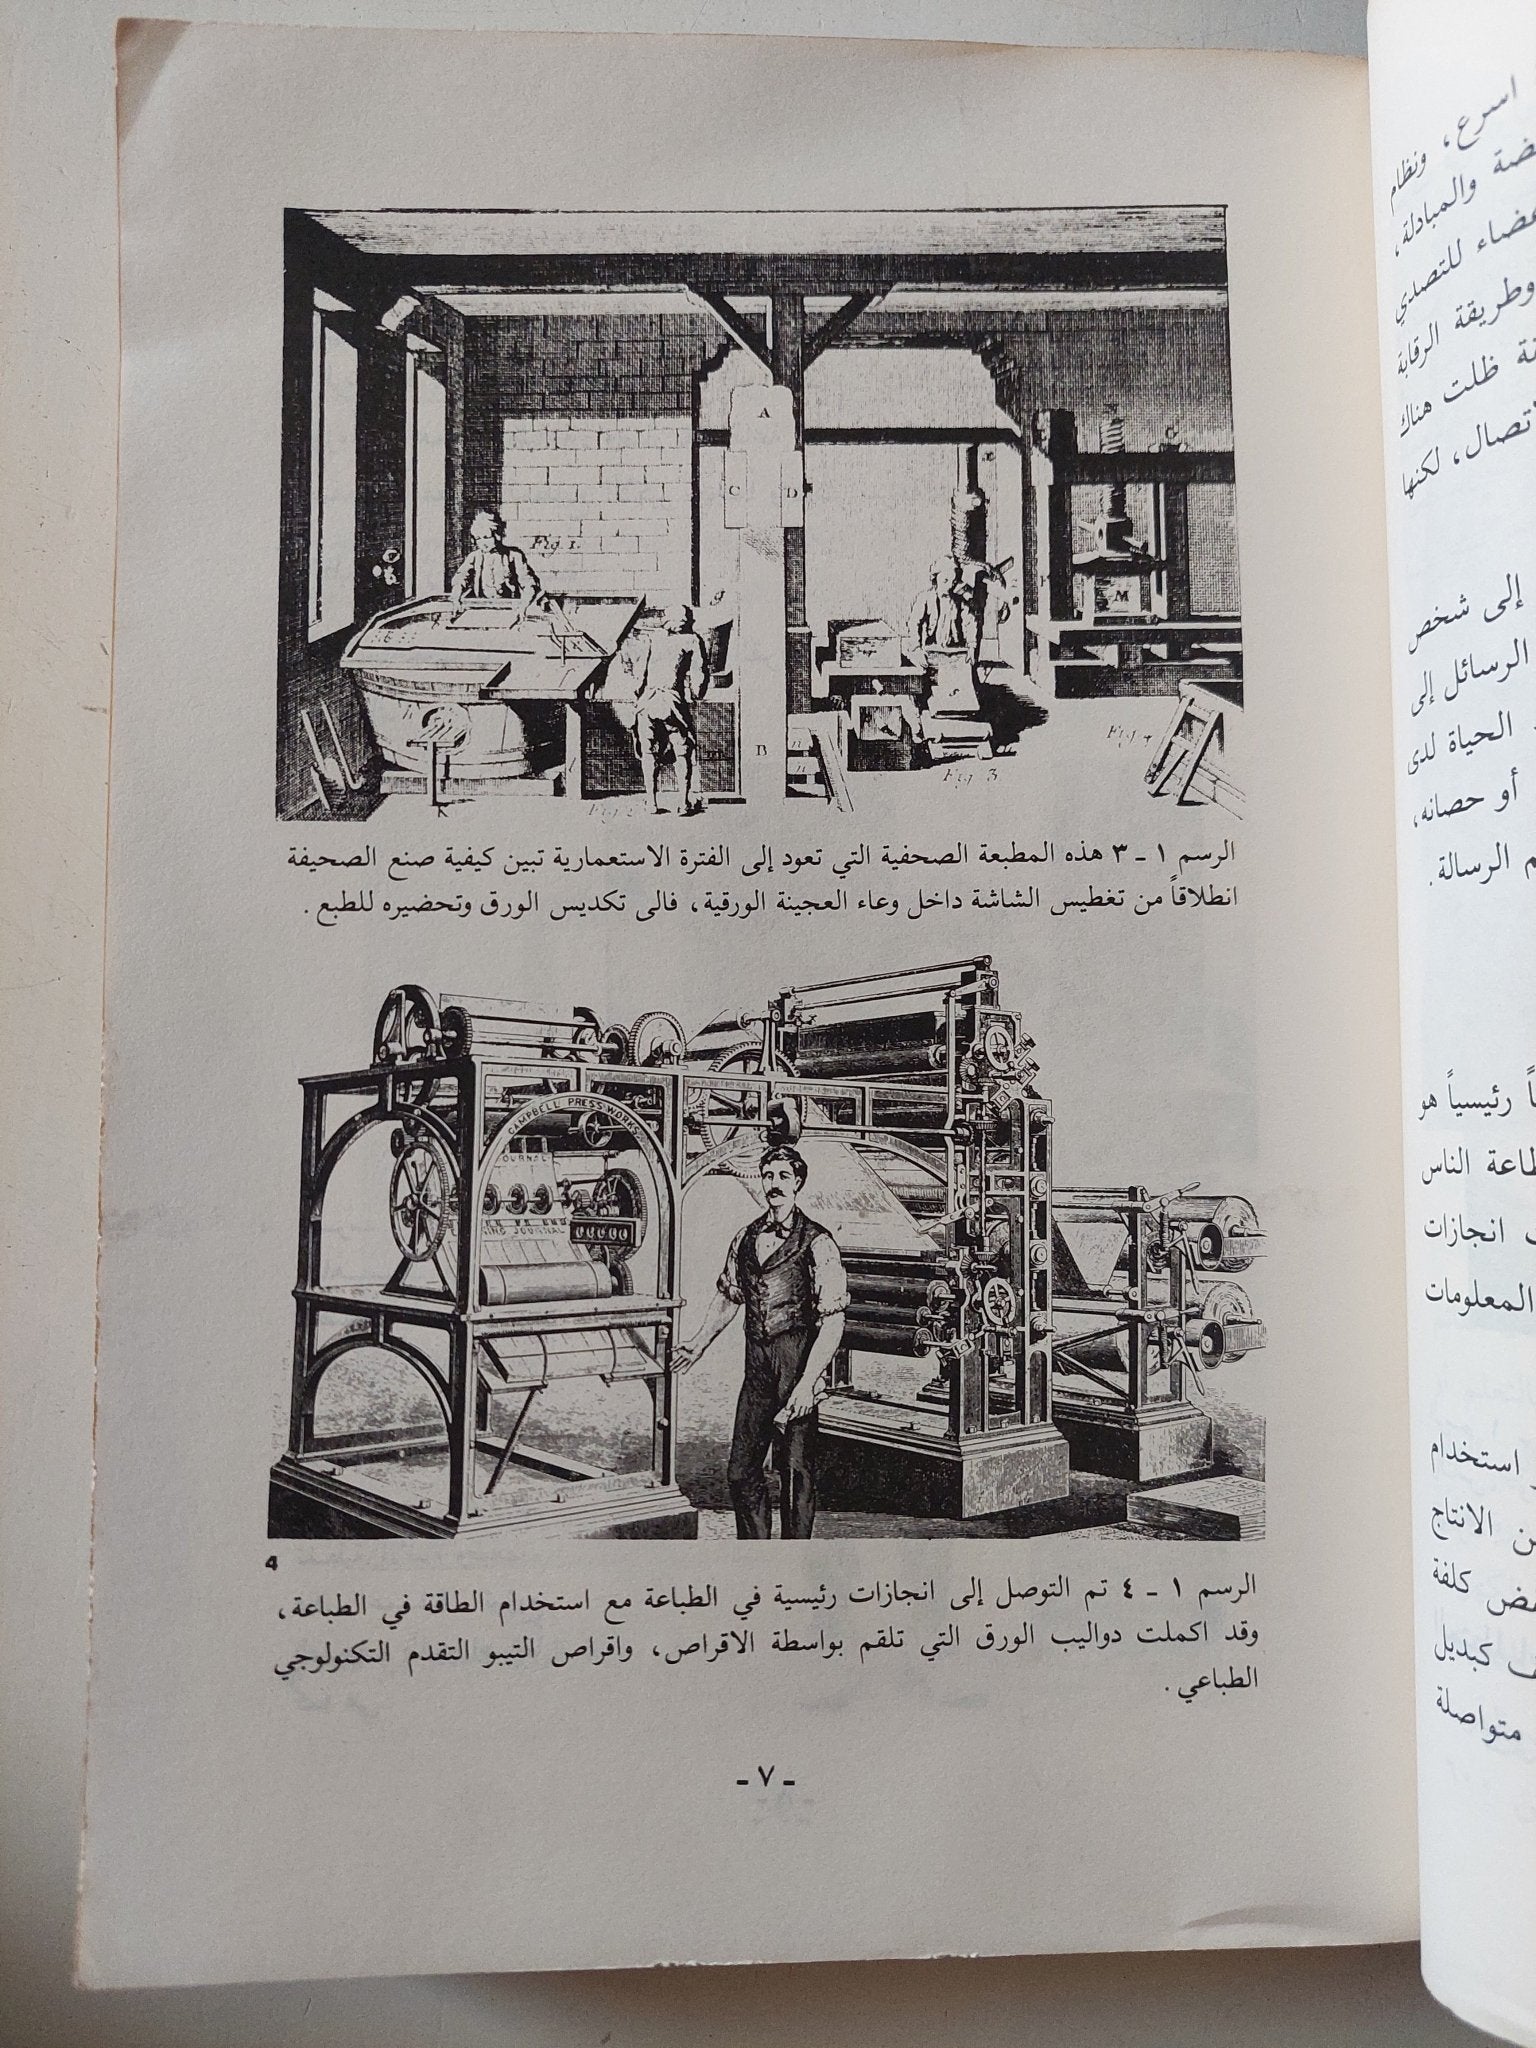 A
C
D
Fig 1.
g
M
h
B
K
n
Fig. 2
Fig 3
Fig. 4
الرسم ١ ـ ٣ هذه المطبعة الصحفية التي تعود إلى الفترة الاستعمارية تبين كيفية صنع الصحيفة
انطلاقاً من تغطيس الشاشة داخل وعاء العجينة الورقية، فالى تكديس الورق وتحضيره للطبع.
CAMPBELL PRESS WORKS
JOURNAL
JOURNAL
4
الرسم ١ ـ ٤ تم التوصل إلى انجازات رئيسية في الطباعة مع استخدام الطاقة في الطباعة،
وقد اكملت دواليب الورق التي تلقم بواسطة الاقراص، واقراص التيبو التقدم التكنولوجي
الطباعي.
ـ ٧ ـ
اسرع، ونظام
والمبادلة،
للتصدي
وطريقة الرقابة
ظلت هناك
لكنها
إلى شخص
الرسائل إلى
الحياة لدى
أو حصانه،
الرسالة.
رئيسياً هو
الناس
انجازات
المعلومات
استخدام
الانتاج
كلفة
كبديل
متواصلة